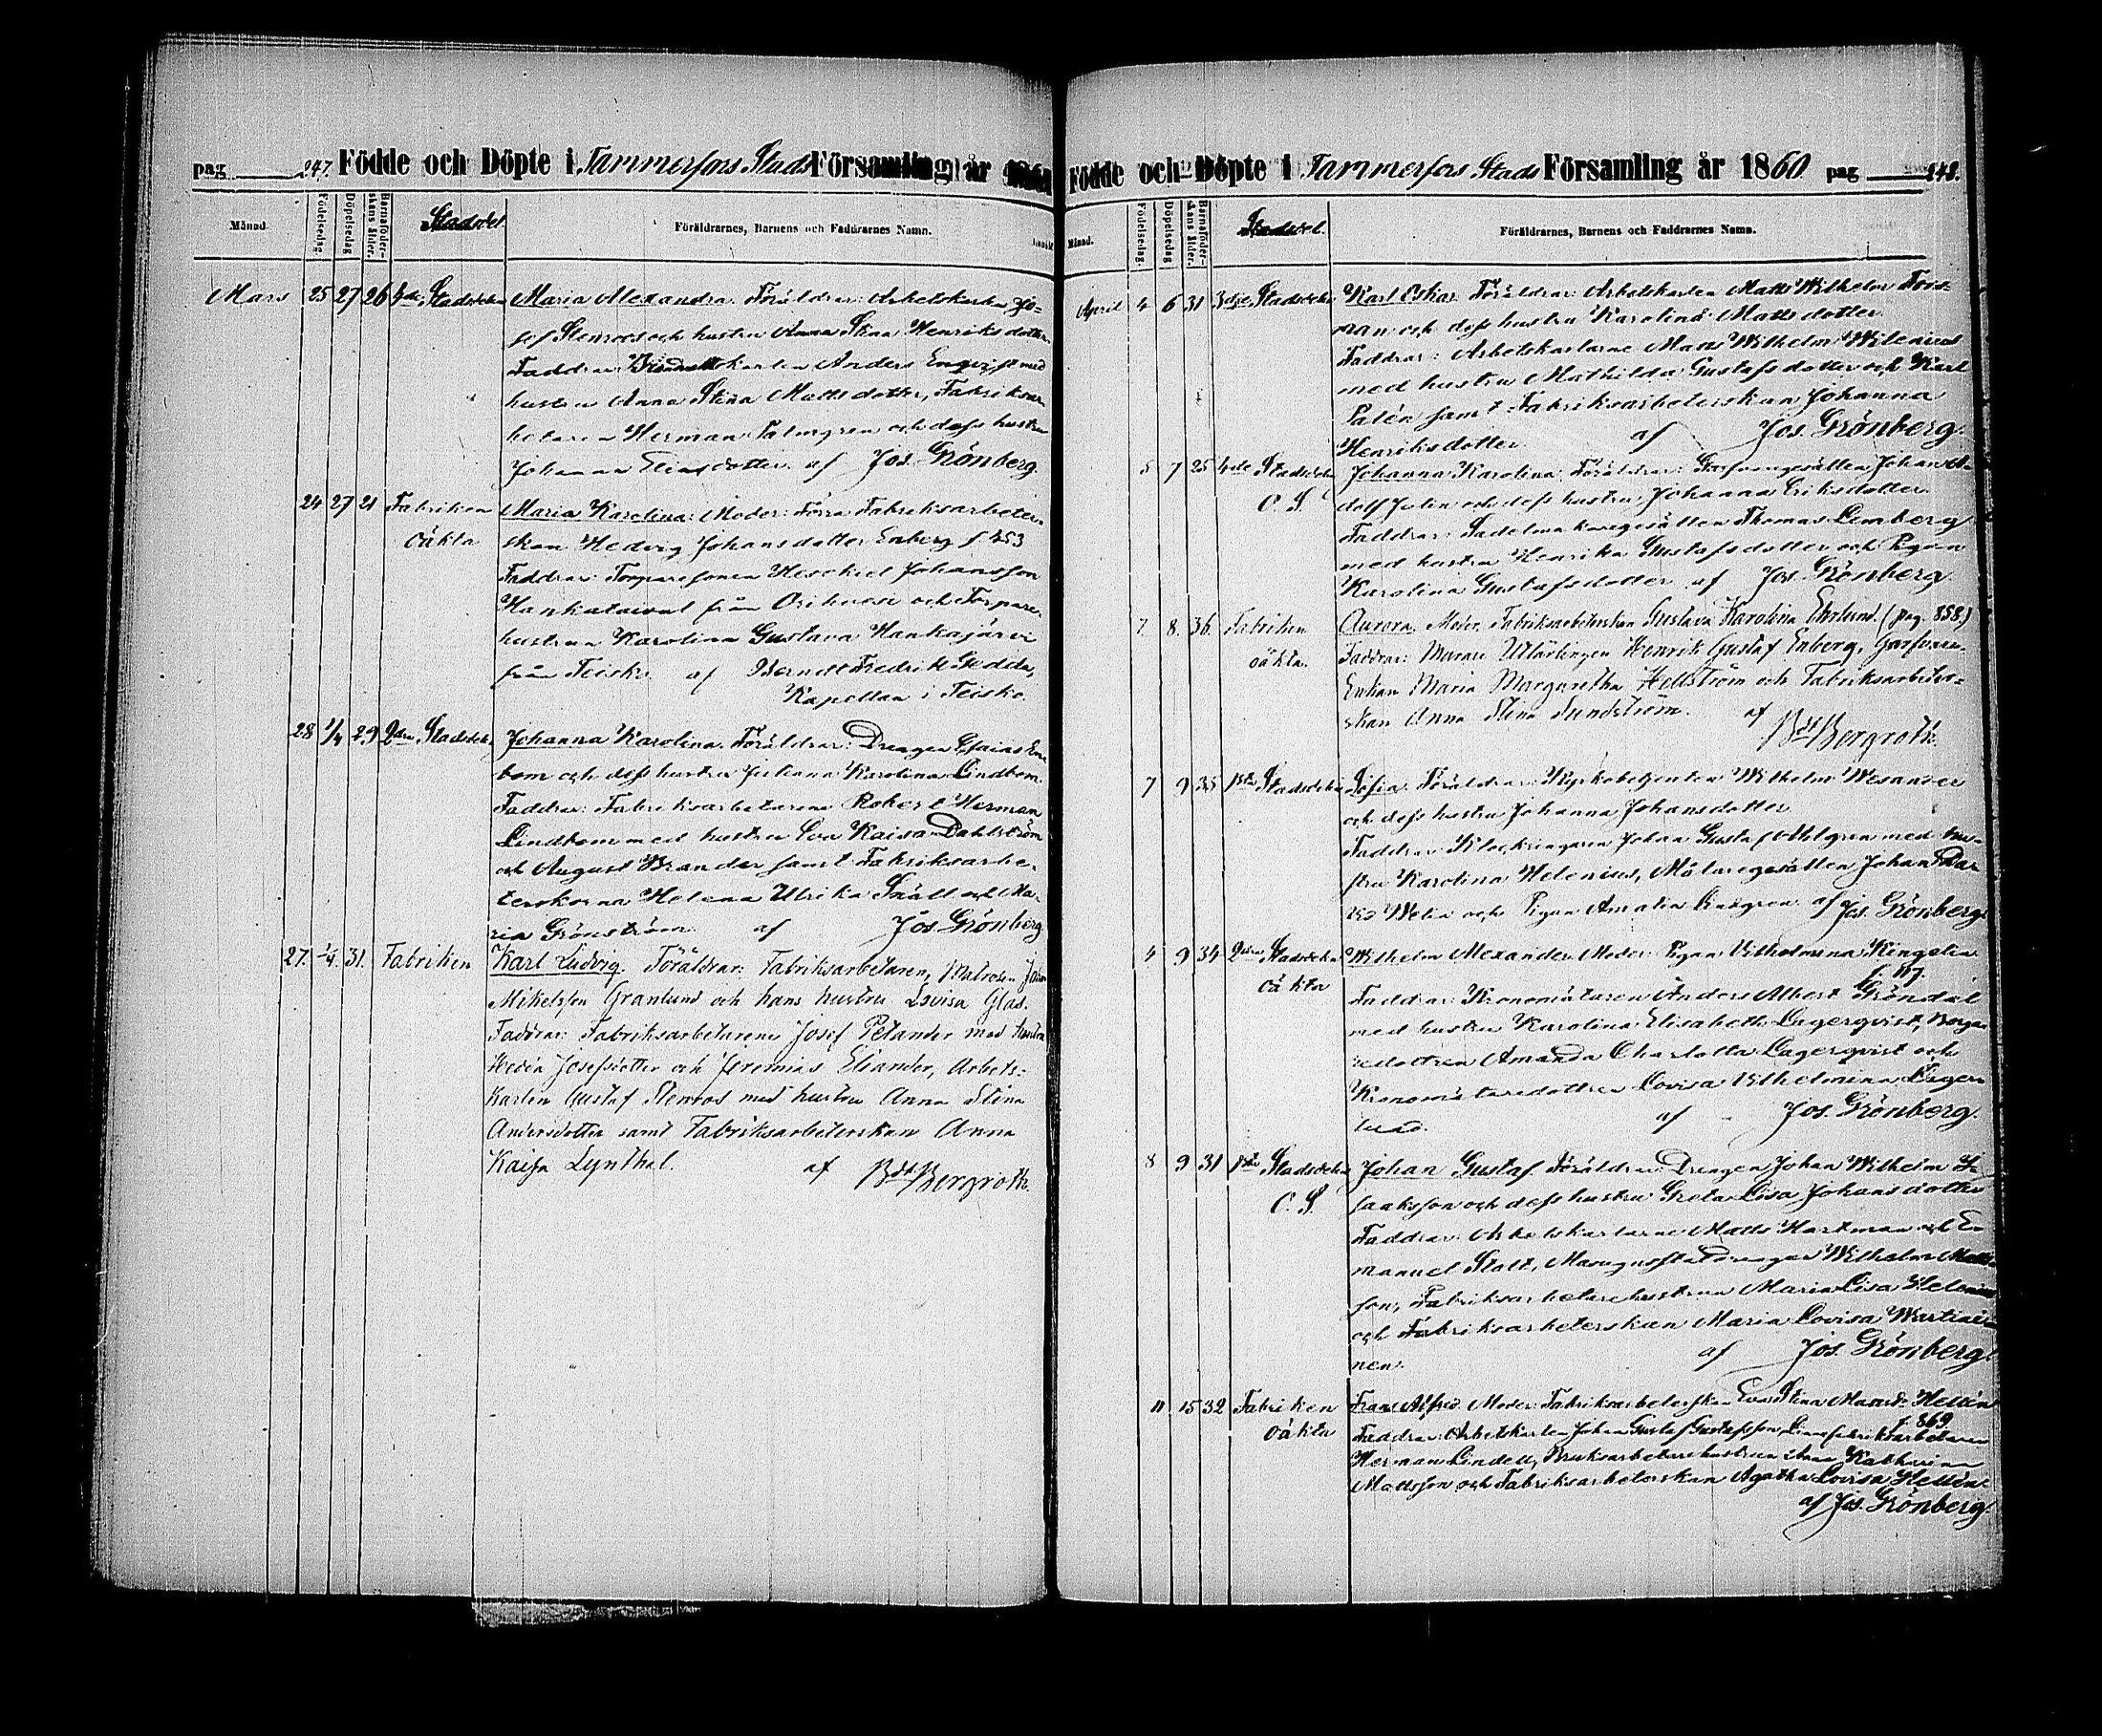 pag 247. Födde och Döpte i Tammerfors Stads Församling år
Månad Födelsedag. Döpelsedag Barnaföderskans ålder. Stadsdel. Föräldrarnes, Barnens och Faddrarnes Namn.
Mars 25 27 26 4de Stadsdelen Maria Alexandra. Föräldrar: Arbetskarlen Jo-
sef Stenroos och hustru Anna Stina Henriksdotter
Faddrar: Anders Engvist med
hustru Anna Stina Mattsdotter, Fabriksar-
betaren Herman Palmgren och dess hustru
Johanna Eliasdotter af Jos. Grönberg.
24 27 21 Fabriken Maria Karolina: Moder: Förra Fabriksarbeter-
oäkta skan Hedvig Johansdotter Enberg f 853
Faddrar: Torparesonen Heskiel Johansson
Hankataival från Orihvesi och Torpare-
hustrun Karolina Gustava Hankajärvi
från Teisko af Berndt Fredrik Gedda,
Kapellan i Teisko.
28 1/4 29 2dra Stadsdelen Johanna Karolina. Föräldrar: Drengen Esaias En-
bom och dess hustru Juliana Karolina Lindbom
Faddrar: Fabriksarbetarene Robert Herman
Lindbom med hustru Eva Kaisa Dahlström
och August Brander samt Fabriksarbe-
terskorna Helena Ulrika Snäll och Ma-
ria Grönström af Jos. Grönberg
27. 1/4. 31. Fabriken Karl Ludvig. Föräldrar: Fabriksarbetaren, Matrosen Johan
Mikelsson Granlund och hans hustru Lovisa Glad.
Faddrar: Fabriksarbetarene Josef Petander med hustru
Hedda Josefsdotter och Jeremias Eliander, Arbets-
karlen Gustaf Stenroos med hustru Anna Stina
Andersdotter samt Fabriksarbeterskan Anna
Kaisa Lynthel. af Bdt Bergroth.
Födde och Döpte i Tammerfors Stads Församling år 1860 pag 248.
Månad. Födelsedag. Döpelsedag Barnaföderskans ålder. Stadsdel. Föräldrarnes, Barnens och Faddrarnes Namn.
April 4 6 31 3dje Stadsdelen Karl Oskar. Föräldrar: Arbetskarlen Matts Wilhelm Fors-
man och dess hustru Karolina Mattsdotter.
Faddrar: Arbetskarlarne Matts Wilhelm Wilenius
med hustru Mathilda Gustafsdotter och Karl
Palén samt Fabriksarbeterskan Johanna
Henriksdotter af Jos. Grönberg.
5 7 25 4de Stadsdelen Johanna Karolina. Föräldrar: Garfvaregesällen Johan A-
O. S. dolf Julin och dess hustru Johanna Eriksdotter.
Faddrar: Sadelmakaregesällen Thomas Lemberg
med hustru Henrika Gustafsdotter och Pigan
Karolina Gustafsdotter af Jos. Grönberg.
7. 8. 36. Fabriken Aurora. Moder. Fabriksarbeterskan Gustava Karolina Ehrlund. (pag. 858.)
oäkta. Faddrar: Murare Utlärlingen Henrik Gustaf Enberg, Garfvare-
Enkan Maria Margaretha Hellström och Fabriksarbeter-
skan Anna Stina Sundström. af
Bdt Bergroth.
7 9 35 1sta Stadsdelen Sofia. Föräldrar: Kyrkobetjenten Wilhelm Wesander
och dess hustru Johanna Johansdotter
Faddrar: Klockringaren Johan Gustaf Ahlgren med hu-
stru Karolina Helenius, Målaregesällen Johan Da-
vid Welin och Pigan Amalia Lindgren af Jos. Grönberg.
4 9 34 2dra Stadsdelen Wilhelm Alexander. Moder: Pigan Vilhelmina Ringelin
oäkta f. 117.
Faddrar: Kronomätaren Anders Albert Gröndal
med hustru Karolina Elisabeth Lagerqvist, Borga-
redottren Amanda Charlotta Lagerqvist och
Kronomätaredottren Lovisa Vilhelmina Lager-
blad. af Jos. Grönberg.
8 9 31 1sta Stadsdelen Johan Gustaf. Föräldrar: Drengen Johan Wilhelm I-
O. S. saaksson och dess hustru Greta Lisa Johansdotter
Faddrar: Arbetskarlarne Matts Hartman och E-
manuel Stolt, Masugnsställdrengen Wilhelm Matts-
son, Fabriksarbetarehustrun Maria Lisa Helenius
och Fabriksarbeterskan Maria Lovisa Wartiai-
nen. af Jos. Grönberg.
11 15 32 Fabriken Frans Alfred. Moder: Fabriksarbeterskan Eva Stina Mattsdr Hellén
oäkta f. 869
Faddrar: Arbetskarlen Johan Gustaf Gustafsson, Linnefabriksarbetaren
Herman Lindell, Bruksarbetarehustrun Anna Katharina
Mattsson och Fabriksarbeterskan Agatha Lovisa Hellén.
af Jos. Grönberg.